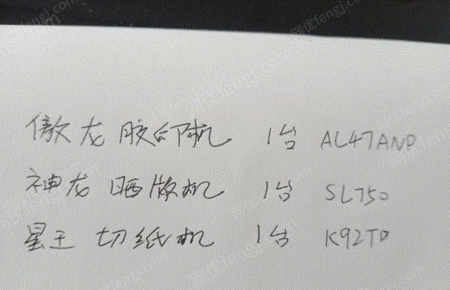 傲龙胶印机 1台 AL47ANP
神龙晒版机 1台 SL750
星王切纸机 1台 K92TD